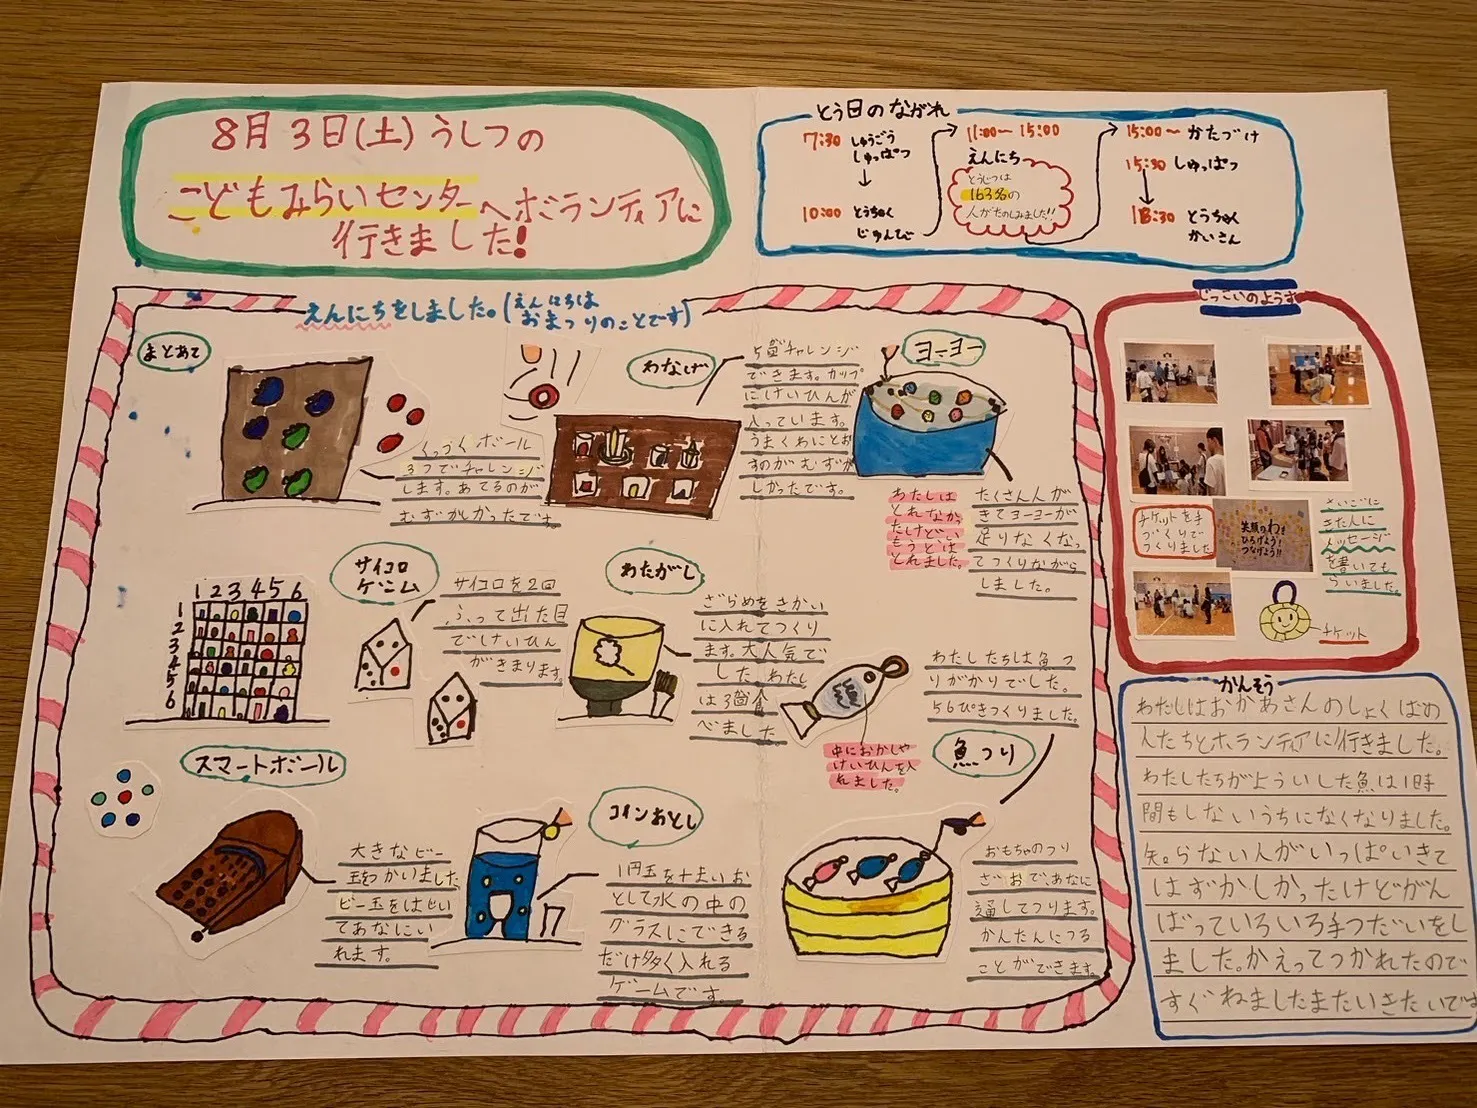 8月3日(土)うしつの
こどもみらいセンターへボランティアに
行きました!
とう日のながれ
7:30 しゅうごう
しゅっぱつ
10:00 とうちゃく
じゅんび
11:00〜15:00
えんにち
とうじつは
163名の
人がたのしみました!!
15:00〜かたづけ
15:30 しゅっぱつ
18:30 とうちゃく
かいさん
えんにちをしました。(えんにちは
おまつりのことです)
まとあて
くっつくボール
3つでチャレンジ
します。あてるのが
むずかしかったです。
わなげ
5回チャレンジ
できます。カップ
にけいひんが
入っています。
うまくわにとお
すのがむずか
しかったです。
ヨーヨー
わたしは
とれなかっ
たけどい
もうとは
とれました。
たくさん人が
きてヨーヨーが
足りなくなっ
てつくりながら
しました。
サイコロ
ゲーム
1 2 3 4 5 6
1
2
3
4
5
6
サイコロを2回
ふって出た目
でけいひん
がきまります。
わたがし
ざらめをきかい
に入れてつくり
ます。大人気で
した。わたし
は3箇食
べました
わたしたちは魚つ
りがかりでした。
56ぴきつくりました。
中におかしや
けいひんを入
れました。
魚つり
おもちゃのつり
ざおで、あなに
通してつります。
かんたんにつる
ことができます。
スマートボール
大きなビー
玉をつかいました。
ビー玉をはじい
てあなにい
れます。
コインおとし
1円玉を十まいお
として水の中の
グラスにできる
だけ多く入れる
ゲームです。
じっさいのようす
チケットを手
づくりで
つくりました
笑顔のわを
ひろげよう!
つなげよう!!
さいごに
きた人に
メッセージ
を書いても
らいました。
チケット
かんそう
わたしはおかあさんのしょくばの
人たちとボランティアに行きました。
わたしたちがよういした魚は1時
間もしないうちになくなりました。
知らない人がいっぱいきて
はずかしかったけどがん
ばっていろいろ手つだいをし
ました。かえってつかれたので
すぐねましたまたいきたいです